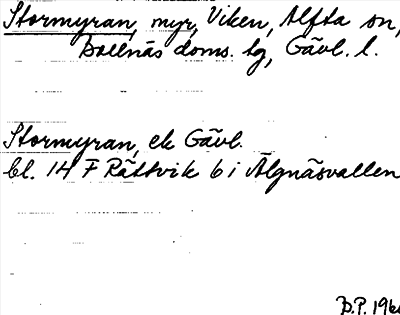 Stormyran, myr, Viken, Alfta sn,
Bollnäs doms. tg, Gävl. l.
Stormyran, ek Gävl.
bl. 14 F Rättvik 6 i Älgnäsvallen